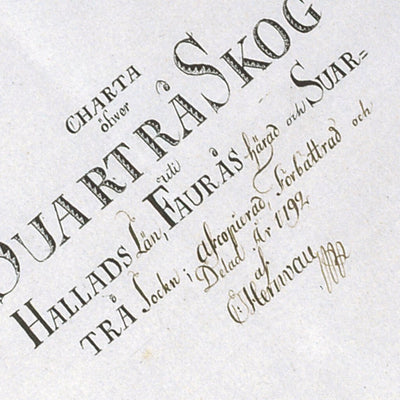 CHARTA
öfwer
DUARTRÅ SKOG
uti
HALLADS Län, FAURÅS härad och SUAR=
TRÅ Sockn; Afcopierad, Förbättrad och
Delad År 1792
af
C Hernwall